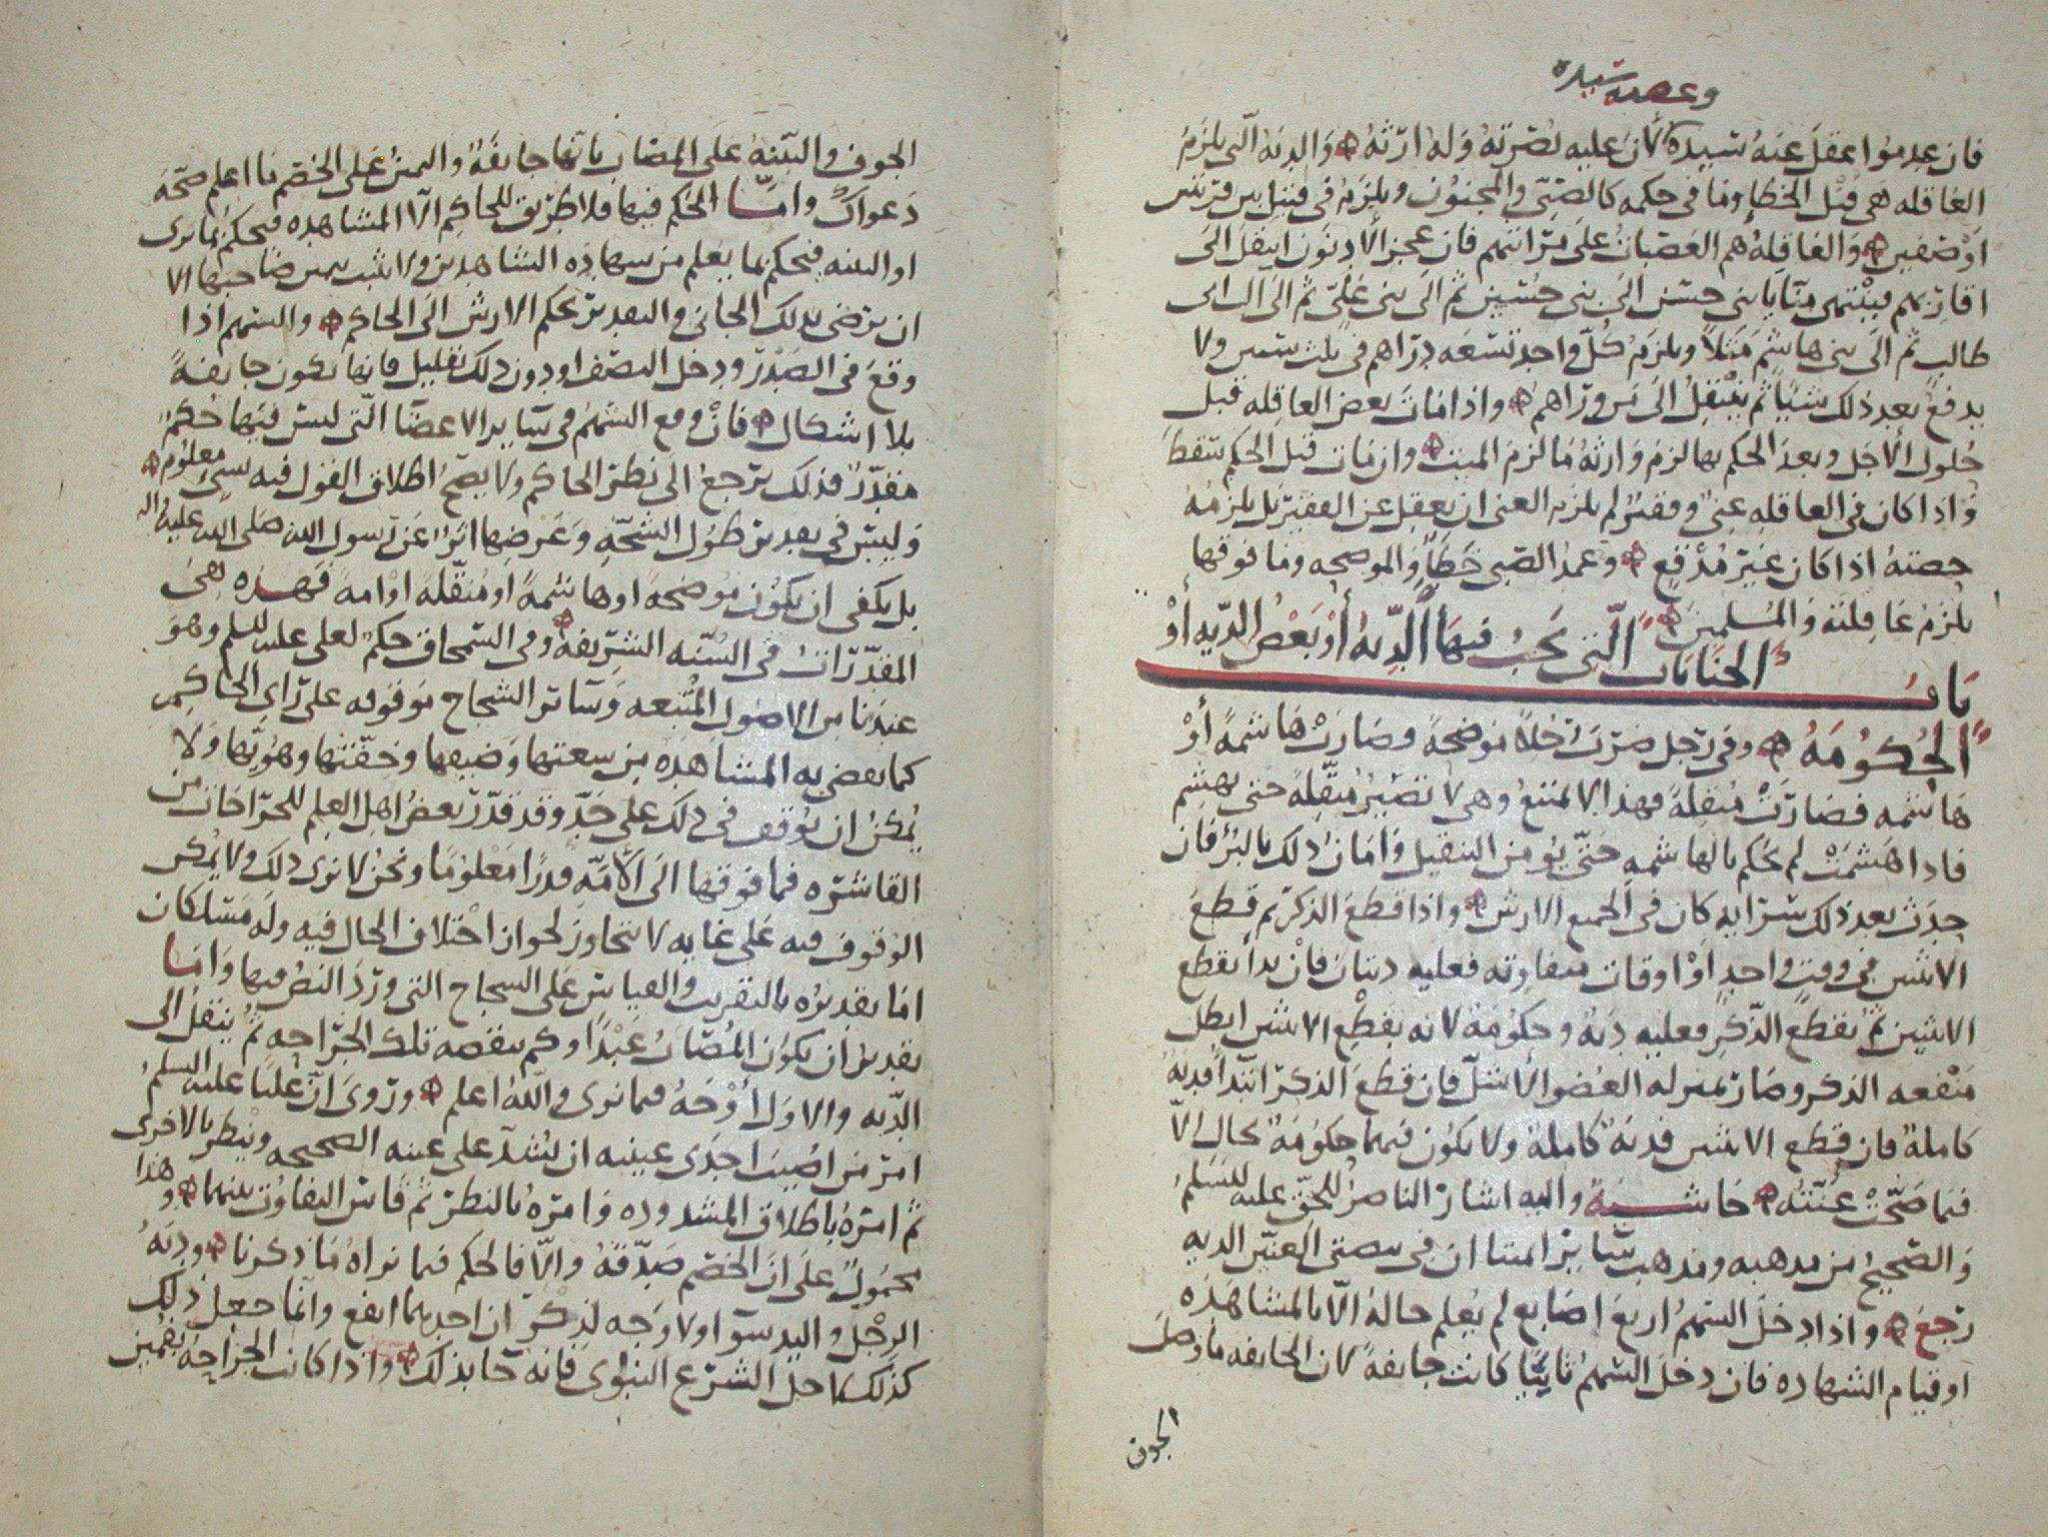 وعصبه سيده
فان عدموا عقل عنه سيده لان عليه نصرته وله ارثه والديه التي يلزم
العاقله هي قتل الخطا وما في حكمه كالصبي والمجنون ويلزم في قتيل بين قريتين
او صفين والعاقله هم العصبات على مراتبهم فان عجز الادنون انتقل الى
اقاربهم فيبتدى مثالا بني حسن الى بني حسين ثم الى بني علي ثم الى ال ابي
طالب ثم الى بني هاشم مثلا ويلزم كل واحد تسعه دراهم في ثلث سنين ولا
يدفع بعد ذلك شيا ثم ينتقل الى واذا مات بعض العاقله قبل
حلول الاجل وبعد الحكم بها لزم وارثه ما لزم الميت وان مات قبل الحكم سقط
واذا كان في العاقله غني وفقير لم يلزم الغني ان يعقل عن الفقير بل يلزمه
حصته اذا كان غير مدقع وعمد الصبي خطا والموضحه وما فوقها
يلزم عاقلته والمسلمين
باب الجنايات التي تجب فيها الديه أو بعض الديه أو
الحكومه وفي رجل ضرب رجلا موضحة وصارت هاشمة أو
هاشمه فصارت منقلة فهذا لا يمتنع وهي لا تصير منقلة حتى يهشم
فاذا هشمت لم يحكم بالهاشمه حتى يؤمن التنقيل وامان ذلك بالبرؤ فان
حدث بعد ذلك سرايه كان في الجميع الارش واذا قطع الذكر ثم قطع
الانثيين في وقت واحد او اوقات متفاوته فعليه ديتان فان بدا بقطع
الانثيين ثم بقطع الذكر فعليه دية وحكومة لانه بقطع الانثيين ابطل
منفعه الذكر وصار بمنزله العضو الاشل فان قطع الذكر ابتدا فديه
كاملة فان قطع الانثيين فدية كاملة ولا يكون فيهما حكومة بحال الا
فيما صحت عنته حاشية واليه اشار الناصر للحق عليه السلم
والصحيح من مذهبه ومذهب سائر ائمتنا ان في بيضتي العنين الديه
رجع واذا دخل السهم اربع اصابع لم يعلم حاله الا بالمشاهده
او قيام الشهاده فان دخل السهم ثابتا كانت جايفة لان الجايفه ما وصل
الجوف
الجوف والبينة على المصاب بانها جايفة واليمين على الخصم ما اعلم صحة
دعواك واما الحكم فيها فلا طريق للحاكم الا المشاهده فيحكم بما يرى
او البينه فيحكم بما يعلم من شهاده الشاهدين ولا يثبت يمين صاحبها الا
ان يرضى بذلك الجاني والتقدير بحكم الارش الى الحاكم والسهم اذا
وقع في الصدر ودخل النصف او دون ذلك بقليل فانها تكون جايفة
بلا اشكال فان وقع السهم في ساير الاعضا التي ليس فيها حكم
مقدر فذلك يرجع الى نظر الحاكم ولا يصح اطلاق القول فيه بشي معلوم
وليس في تقدير طول الشجه وعرضها اثر عن رسول الله صلى الله عليه واله
بل يكفي ان يكون موضحة او هاشمة او منقلة او امة فهذه هي
المقدرات في السنه الشريفه وفي السمحاق حكم لعلي عليه السلم وهو
عندنا من الاصول المتبعه وسائر الشجاج موقوفه على راي الحاكم
كما يقضي به المشاهده من سعتها وضيقها وخفتها وهويها ولا
يمكن ان يوقف في ذلك على حد وقد قدر بعض اهل العلم للجراحات من
القاشره فما فوقها الى الامه قدرا معلوما ونحن لا نرى ذلك ولا يمكن
الوقوف فيه على غايه لا تتجاوز لجواز اختلاف الحال فيه وله مسلكان
اما تقديره بالتقريب والقياس على الشجاج التي ورد النص فيها واما
تقدير ان يكون المصاب عبدا وكم ينقصه تلك الجراحه ثم ينتقل الى
الديه والاول أوجه فيما نرى والله اعلم وروى ان عليا عليه السلم
امر من اصيب احدى عينيه ان تشد على عينه الصحيحه وينظر بالاخرى
ثم امره باطلاق المشدوده وامره بالنظر ثم قاس التفاوت بينهما وهذا
محمول على ان الخصم صدقه والا فالحكم فيما نراه ما ذكرنا ودية
الرجل واليد سوا ولا وجه لذكر ان احديهما انفع وانما جعل ذلك
كذلك كاصل الشرع النبوي فانه جا بذلك واذا كانت الجراحه بقميز